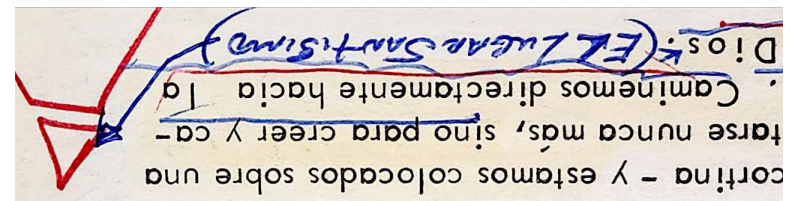 cortina - y estamos colocados sobre una
tarse nunca más, sino para creer y ca-
. Caminemos directamente hacia la
Dios. (EL LUGAR SANTISIMO)